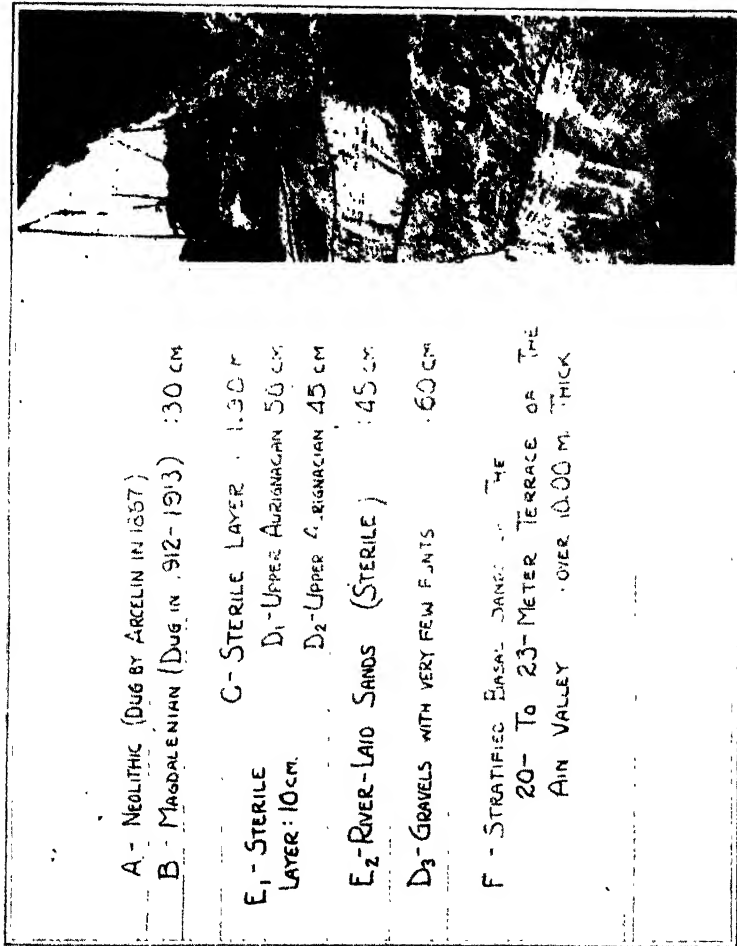 A - NEOLITHIC (DUG BY ARCELIN IN 1867)
B - MAGDALENIAN (DUG IN 1912-1913) : 30 CM
C - STERILE LAYER : 1.30 M
D1 - UPPER AURIGNACIAN 50 CM
E1 - STERILE
LAYER : 10 CM.
D2 - UPPER AURIGNACIAN 45 CM
E2 - RIVER-LAID SANDS (STERILE) : 45 CM
D3 - GRAVELS WITH VERY FEW FLINTS : 60 CM
F - STRATIFIED BASAL SANDS THE
20- TO 23-METER TERRACE OF THE
AIN VALLEY : OVER 10.00 M. THICK